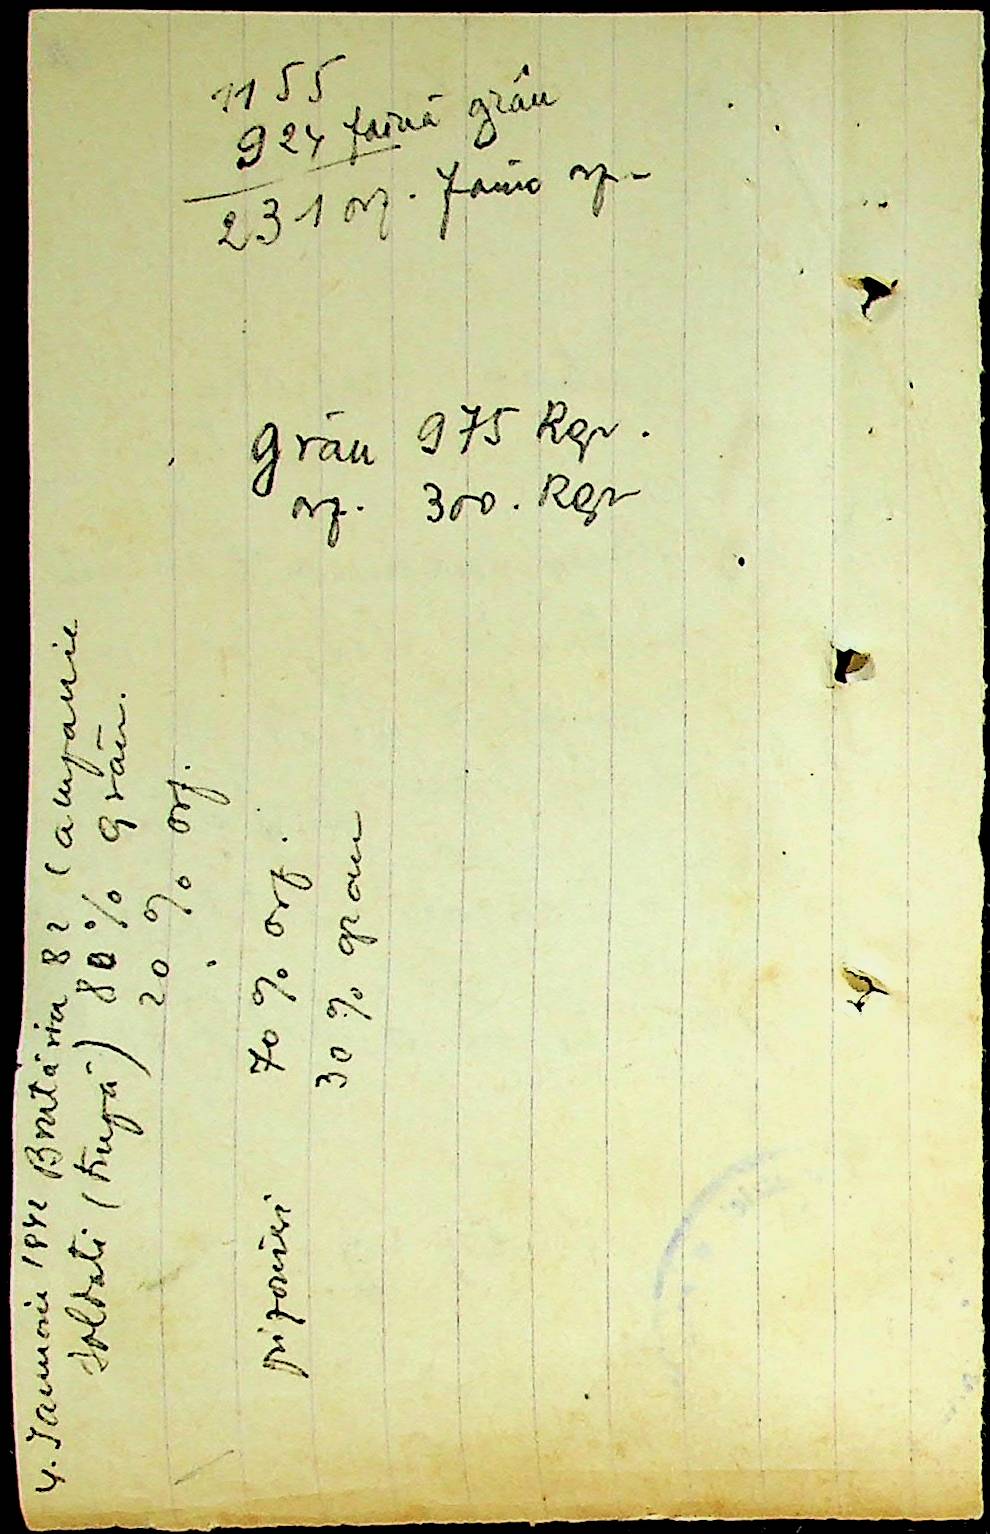 1155
924 faină grâu
231 orz. faină orz.
grâu 975 Kgr.
orz. 300. Kgr
4. Ianuarie 1942 Brutăria 82 Campanie
Soldati (trupă) 80% grâu.
20 % orz.
prizonieri 70 % orz.
30 % grau